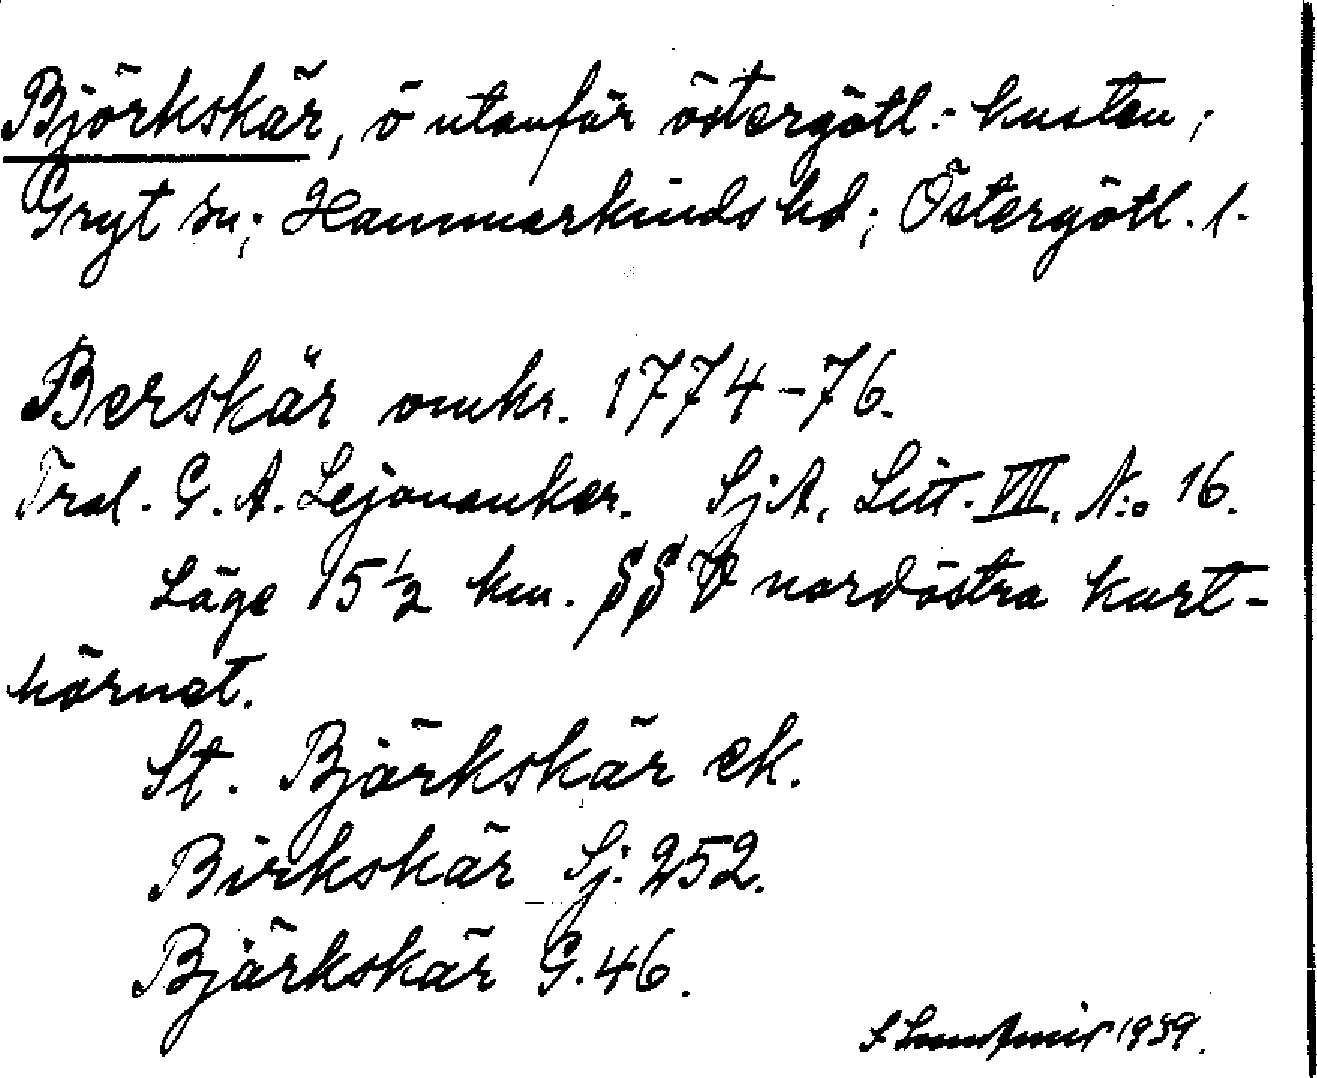 Björkskär, ö utanför östergötl:-kusten;
Gryt sn; Hammarkinds hd; Östergötl. l.
Berskär omkr. 1774-76.
Tral. G. A. Lejonanker. SjA, Litt. VII. N:o 16.
Läge 15 1/2 km. SSV nordöstra kart-
hörnet.
St. Björkskär ek.
Birkskär Sj: 252.
Björkskär G. 46.
1939.